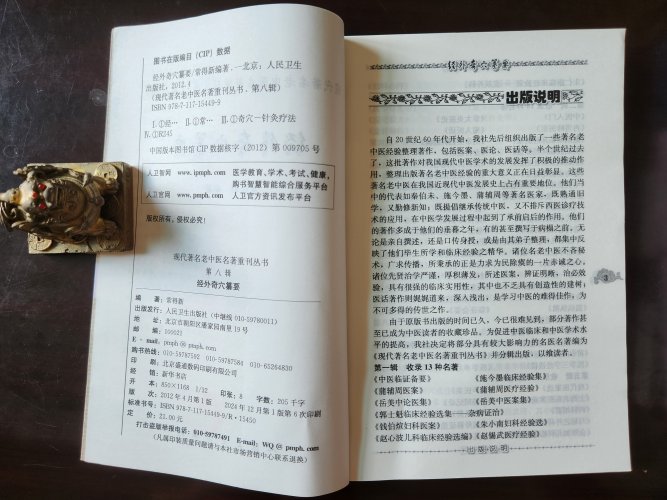 图书在版编目（CIP）数据
经外奇穴纂要/常得新编著.—北京：人民卫生
出版社，2012.4
（现代著名老中医名著重刊丛书．第八辑）
ISBN 978-7-117-15449-9
Ⅰ.①经… Ⅱ.①常… Ⅲ.①奇穴—针灸疗法
Ⅳ.①R245
中国版本图书馆 CIP 数据核字（2012）第 009705 号
人卫智网 www.ipmph.com 医学教育、学术、考试、健康，
购书智慧智能综合服务平台
人卫官网 www.pmph.com 人卫官方资讯发布平台
版权所有，侵权必究！
现代著名老中医名著重刊丛书
第八辑
经外奇穴纂要
编 著：常得新
出版发行：人民卫生出版社（中继线 010-59780011）
地 址：北京市朝阳区潘家园南里 19 号
邮 编：100021
E - mail：pmph @ pmph.com
购书热线：010-59787592 010-59787584 010-65264830
印 刷：北京盛通数码印刷有限公司
经 销：新华书店
开 本：850×1168 1/32 印张：8 字数：205 千字
版 次：2012 年 4 月第 1 版 2024 年 12 月第 1 版第 6 次印刷
标准书号：ISBN 978-7-117-15449-9/R・15450
定 价：21.00 元
打击盗版举报电话：010-59787491 E-mail：WQ @ pmph.com
（凡属印装质量问题请与本社市场营销中心联系退换）
经外奇穴纂要
出版说明
自 20 世纪 60 年代开始，我社先后组织出版了一些著名老
中医经验整理著作，包括医案、医论、医话等。半个世纪过去
了，这批著作对我国现代中医学术的发展发挥了积极的推动作
用，整理出版著名老中医经验的重大意义正在日益彰显。这些
著名老中医在我国近现代中医发展史上占有重要地位。他们当
中的代表如秦伯未、施今墨、蒲辅周等著名医家，既熟通旧
学，又勤修新知；既提倡继承传统中医，又不排斥西医诊疗技
术的应用，在中医学发展过程中起到了承前启后的作用。他们
的著作多成于他们的垂暮之年，有的甚至撰写于病榻之前，无
论是亲自撰述，还是口传身授，或是由其弟子整理，都集中反
映了他们毕生所学和临床经验之精华。诸位名老中医不吝秘
术，广求传播，所秉承的正是力求为民除瘼的一片赤诚之心。
诸位先贤治学严谨，厚积薄发，所述医案，辨证明晰，治必效
验，具有很强的临床实用性，其中也不乏具有创造性的建树；
医话著作则娓娓道来，深入浅出，是学习中医的难得佳作，为
不可多得的传世之作。
由于原版书出版的时间已久，今已很难见到，部分著作甚
至已成为中医读者的收藏珍品。为促进中医临床和中医学术水
平的提高，我社决定将部分具有较大影响力的名医名著编为
《现代著名老中医名著重刊丛书》并分辑出版，以飨读者。
第一辑 收录 13 种名著
《中医临证备要》 《施今墨临床经验集》
《蒲辅周医案》 《蒲辅周医疗经验》
《岳美中论医集》 《岳美中医案集》
《郭士魁临床经验选集——杂病证治》
《钱伯煊妇科医案》 《朱小南妇科经验选》
《赵心波儿科临床经验选编》《赵锡武医疗经验》
出版说明
3